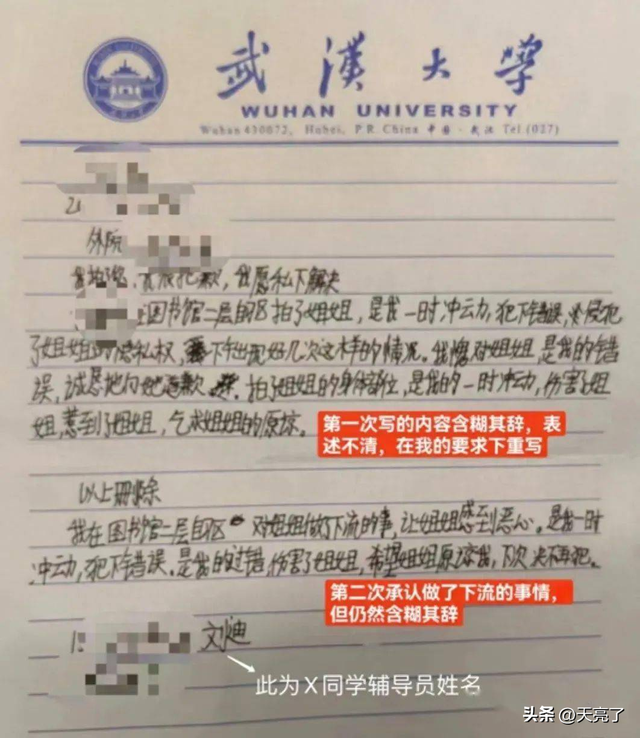 武漢大學
WUHAN UNIVERSITY
Wuhan 430072, Hubei, P.R.China 中国·武汉 Tel (027)
外院
道歉,我愿私下解决
图书馆二层自习区拍了姐姐,是我一时冲动,犯下错误,侵犯
了姐姐的隐私权,出现好几次这样的情况。我愧对姐姐,是我的错
误,诚恳地向她道歉。拍了姐姐的身体部位,是我的一时冲动,伤害了姐
姐,惹到了姐姐,乞求姐姐的原谅。
第一次写的内容含糊其辞,表
述不清,在我的要求下重写
以上删除
我在图书馆二层自习区对姐姐做了下流的事,让姐姐感到恶心。是我一时
冲动,犯下错误。是我的过错,伤害了姐姐,希望姐姐原谅我,下次决不再犯。
第二次承认做了下流的事情,
但仍然含糊其辞
文迪
此为X同学辅导员姓名
头条 @天亮了